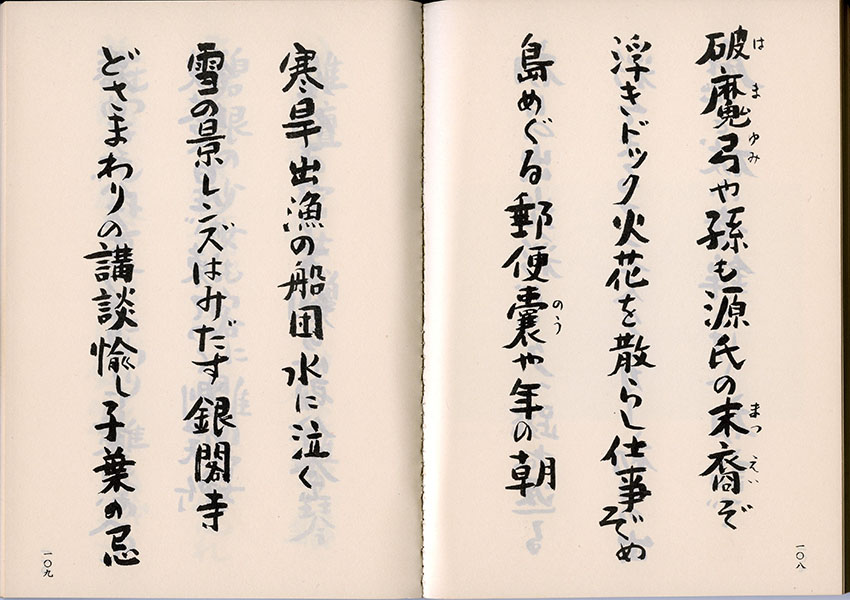 破魔弓や孫も源氏の末裔ぞ
はまゆみ
まつえい
浮きドック火花を散らし仕事ぞめ
島めぐる郵便嚢や年の朝
のう
一〇八
寒旱出漁の船団水に泣く
雪の景レンズはみだす銀閣寺
どさまわりの講談愉し子葉の忌
一〇九